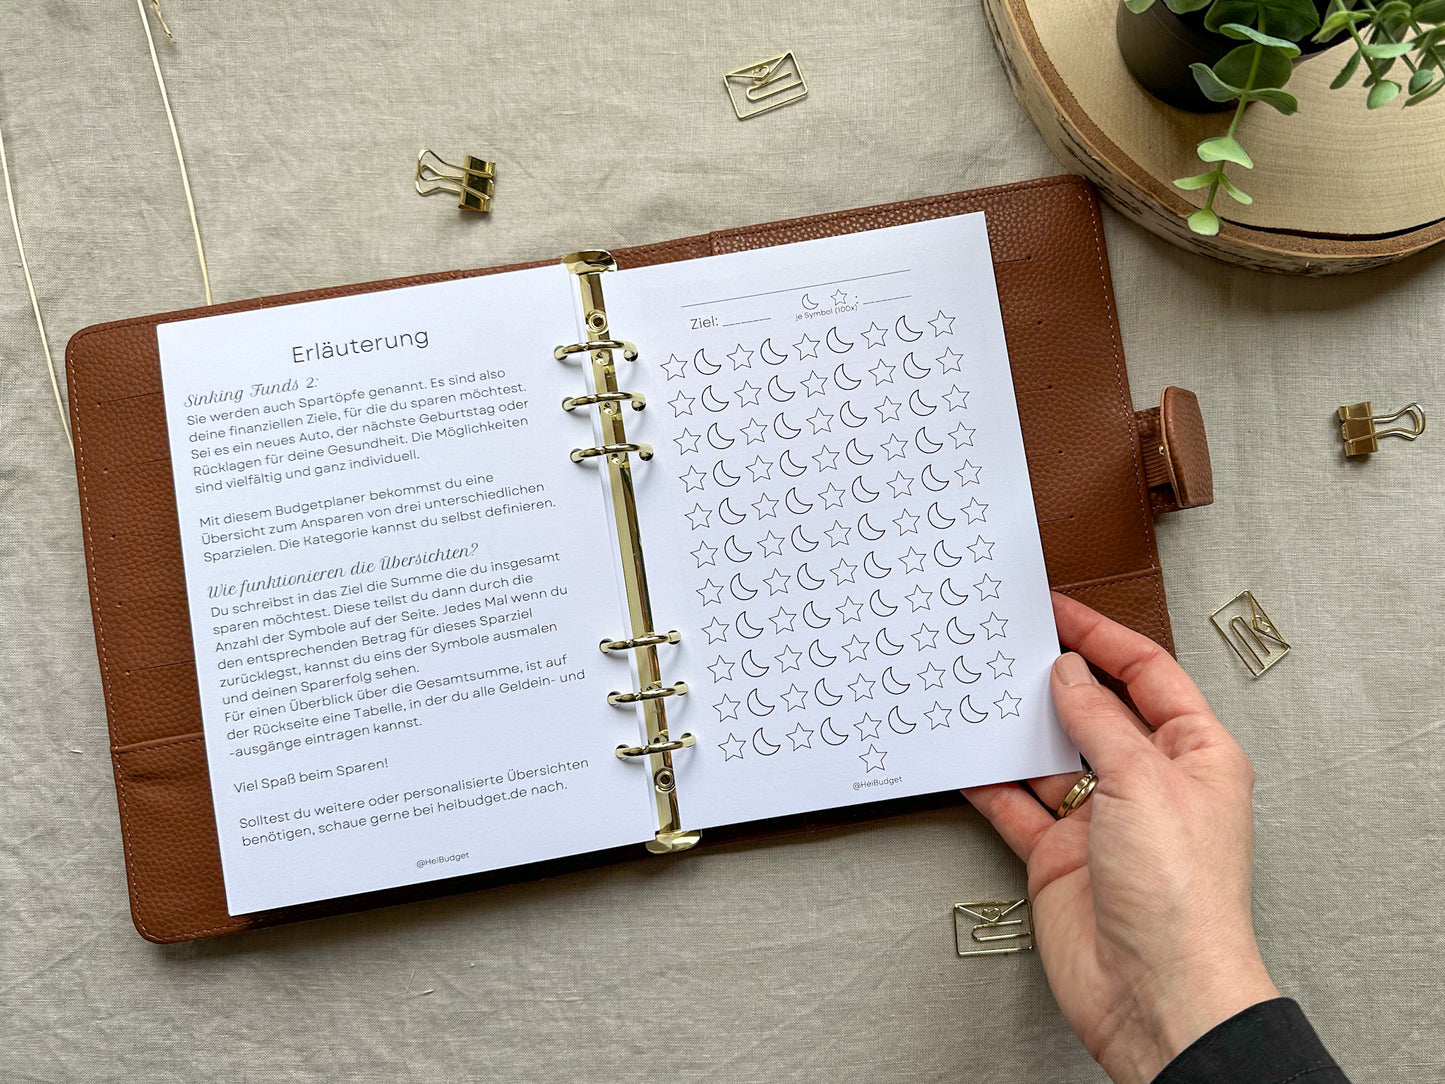 Erläuterung
Sinking Funds 2:
Sie werden auch Spartöpfe genannt. Es sind also
deine finanziellen Ziele, für die du sparen möchtest.
Sei es ein neues Auto, der nächste Geburtstag oder
Rücklagen für deine Gesundheit. Die Möglichkeiten
sind vielfältig und ganz individuell.
Mit diesem Budgetplaner bekommst du eine
Übersicht zum Ansparen von drei unterschiedlichen
Sparzielen. Die Kategorie kannst du selbst definieren.
Wie funktionieren die Übersichten?
Du schreibst in das Ziel die Summe die du insgesamt
sparen möchtest. Diese teilst du dann durch die
Anzahl der Symbole auf der Seite. Jedes Mal wenn du
den entsprechenden Betrag für dieses Sparziel
zurücklegst, kannst du eins der Symbole ausmalen
und deinen Sparerfolg sehen.
Für einen Überblick über die Gesamtsumme, ist auf
der Rückseite eine Tabelle, in der du alle Geldein- und
-ausgänge eintragen kannst.
Viel Spaß beim Sparen!
Solltest du weitere oder personalisierte Übersichten
benötigen, schaue gerne bei heibudget.de nach.
@HeiBudget
Ziel: ______ : ______
je Symbol (100x)
@HeiBudget